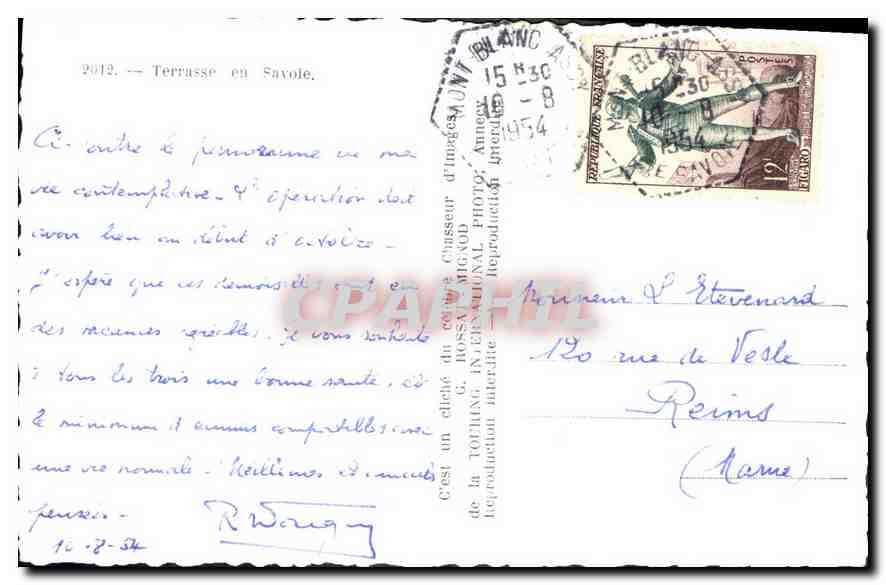 2012. — Terrasse en Savoie.
Ci-contre le panorama vu ma
vie contemplative - L'opération doit
avoir lieu au début d'octobre -
J'espère que ces demoiselles ont eu
des vacances agréables. Je vous souhaite
à tous les trois une bonne santé, et
le minimum d'ennuis compatibles avec
une vie normale. Meilleures et amicales
pensées -
10-8-54
C'est un cliché du peintre Chasseur d'Images
G. ROSSAT-MIGNOD
de la TOURING INTERNATIONAL PHOTO, Annecy
Reproduction interdite — Reproduction interdite
MONT BLANC
15 H 30
10 - 8
1954
MONT BLANC
15 H 30
10 - 8
1954
HTE SAVOIE
RÉPUBLIQUE FRANÇAISE
POSTES
12F
FIGARO
CPAPHIL
Monsieur L Etevenard
120 rue de Vesle
Reims
(Marne)